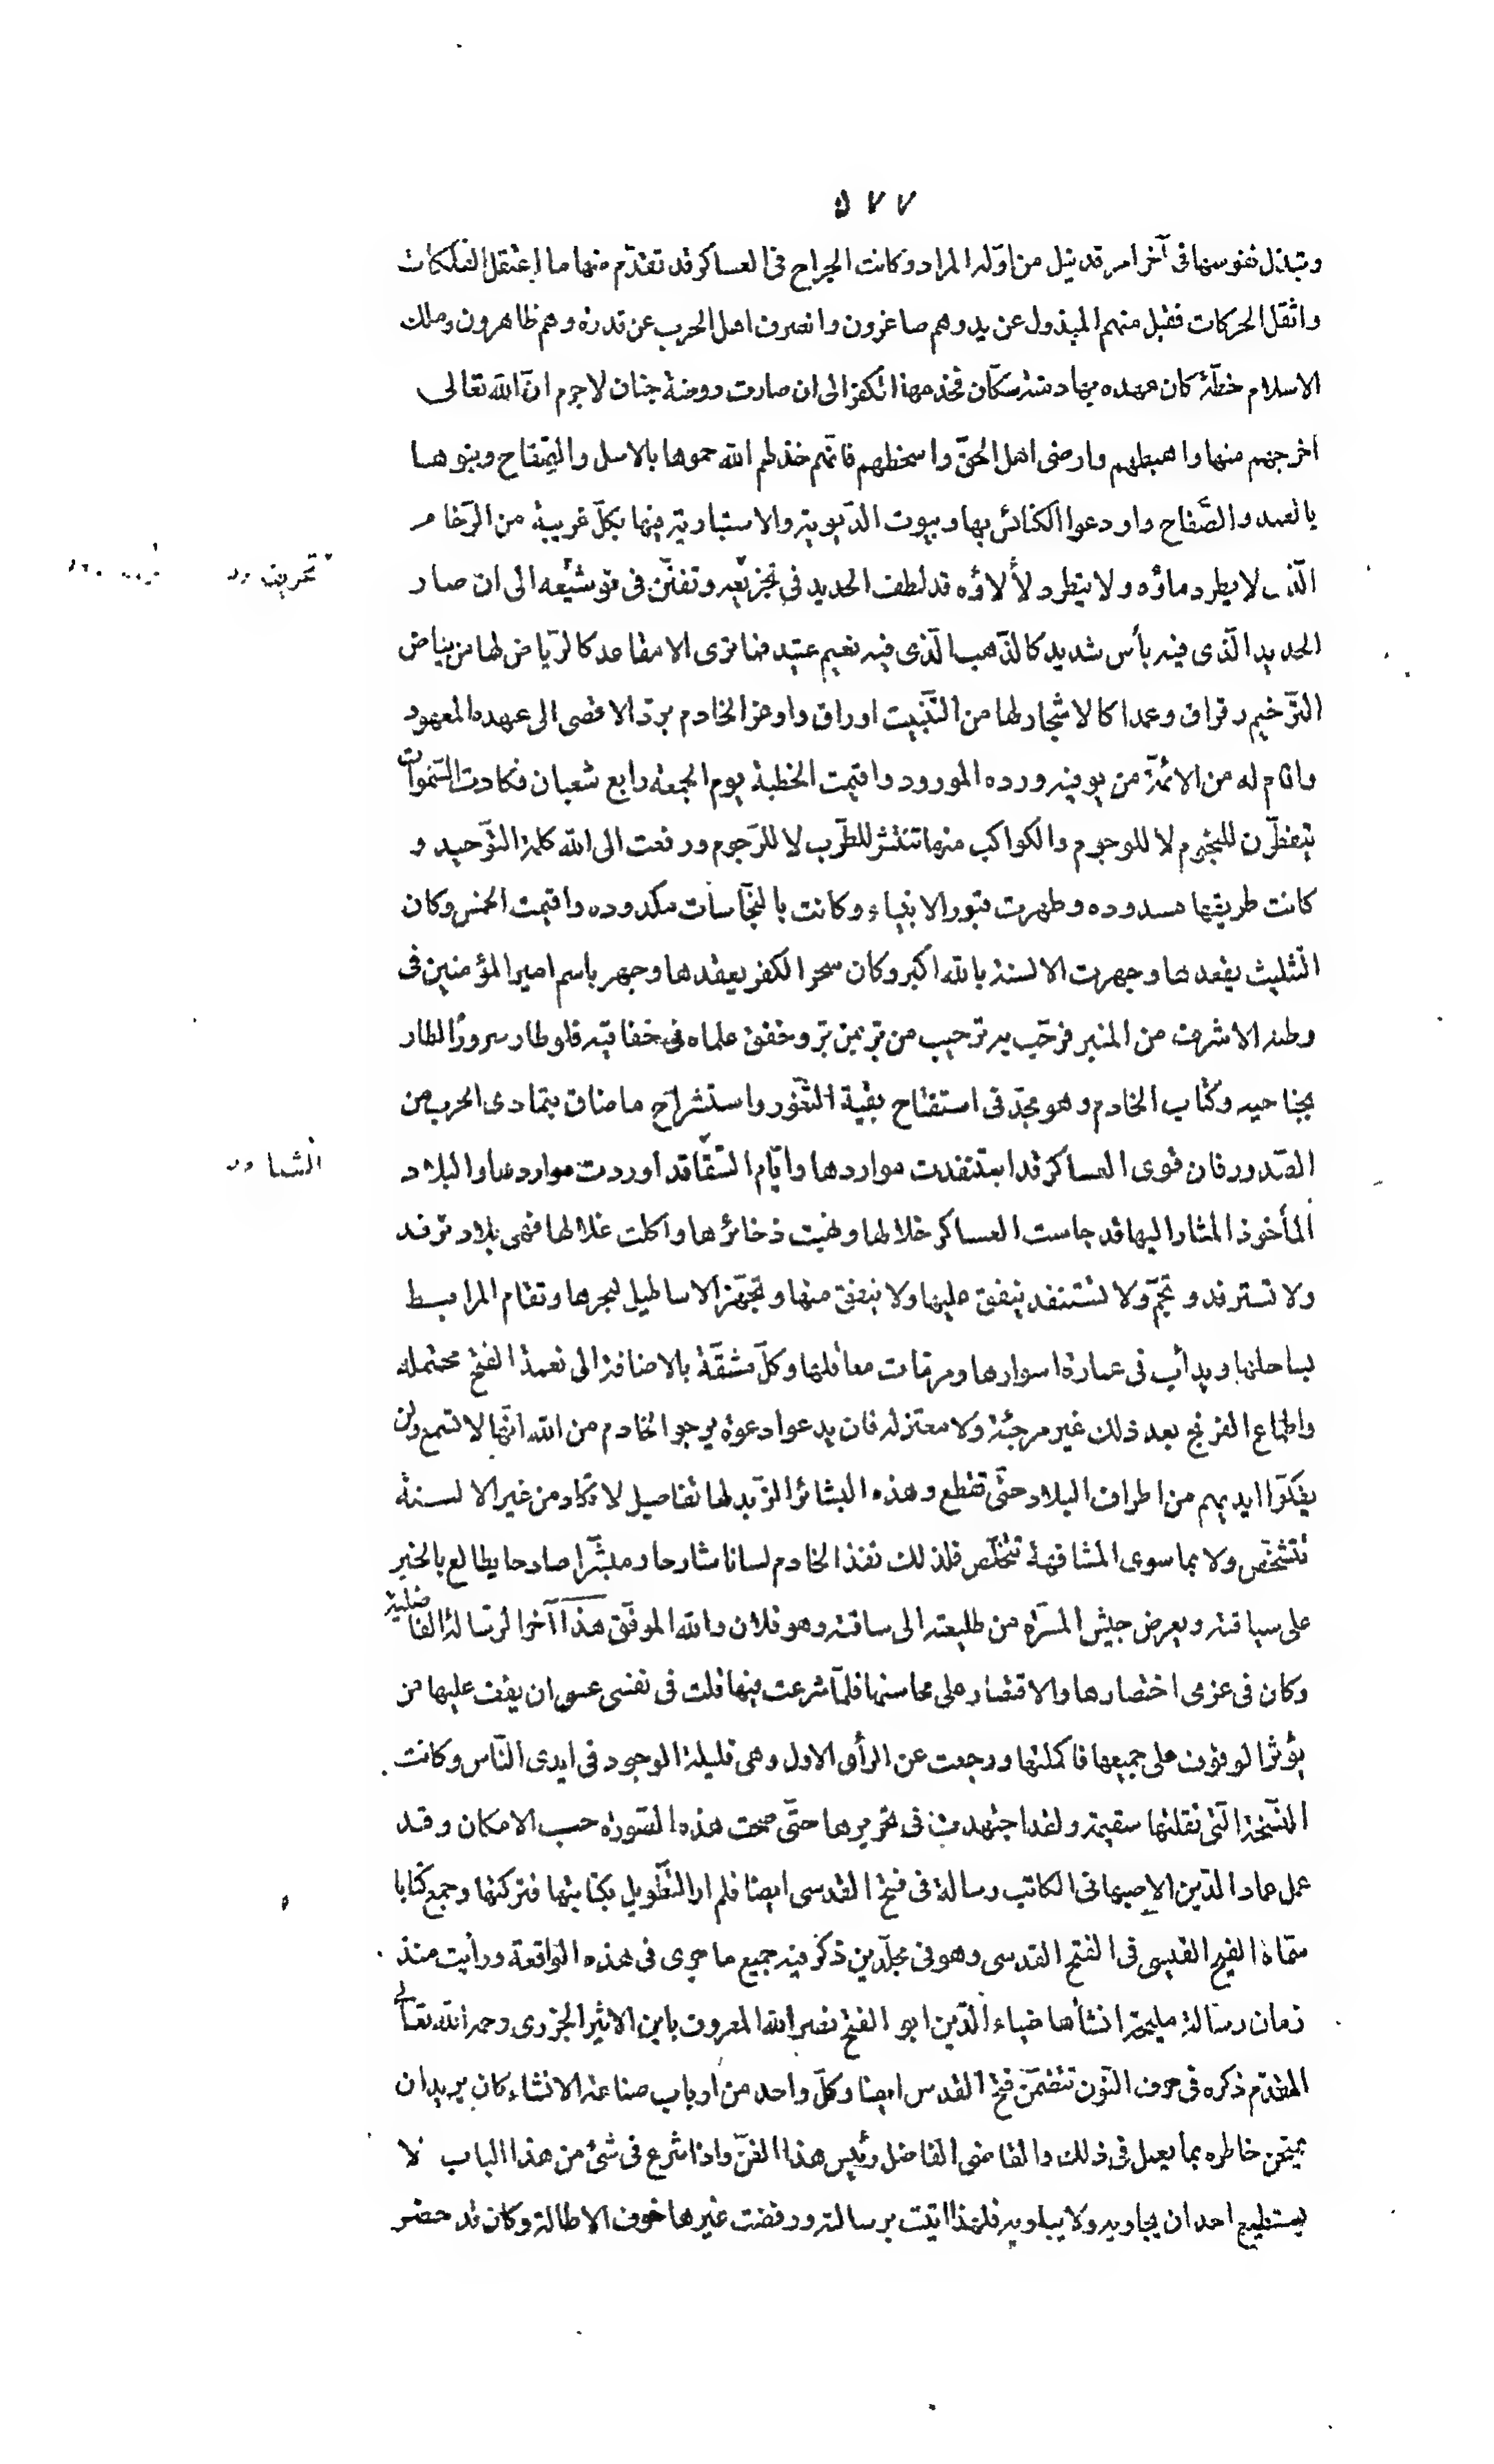 ٥٧٧
وتبذل نفوسها فى آخر امر قد نيل من اوّله المراد وكانت الجراح فى العساكر قد تقدّم منها ما اعتقل الفتكات
واثقل الحركات فقبل منهم المبذول عن يد وهم صاغرون وانصرف اهل الحرب عن قدرة وهم ظاهرون وملك
الاسلام خطّة كان عهده بها دمنة سكّان فخدمها الكفر الى ان صارت روضة جنان لا جرم انّ الله تعالى
اخرجهم منها واهبطهم وارضى اهل الحقّ واسخطهم فانّهم خذلهم الله حموها بالاسل والصّفاح وبنوها
بالعمد والصّفاح واودعوا الكنائس بها وبيوت الدّيوية والاستبارية فيها بكلّ غريبة من الرّخام
الّذى لا يطرد ماؤه ولا يتطرد لألاؤه قد لطف الحديد فى تجزيّعه وتفنّن فى توشيّعه الى ان صار
الحديد الّذى فيه بأس شديد كالذّهب الّذى فيه نعيم عتيد فما ترى الا مقاعد كالرّياض لها من بياض
التّرخيم رقراق وعمدا كالاشجار لها من التّنبيت اوراق واوعز الخادم بردّ الاقصى الى عهده المعهود
واقام له من الائمّة من يوفيه ورده المورود واقيمت الخطبة يوم الجمعة رابع شعبان فكادت السّموات
يتفطّرن للنجوم لا للوجوم والكواكب منها تنتثر للطّرب لا للرّجوم ورفعت الى الله كلمة التّوحيد و
كانت طريقها مسدوده وطهرت قبور الانبياء وكانت بالنجّاسات مكدوده واقيمت الخمس وكان
التثليث يقعدها وجهرت الالسنة بالله اكبر وكان سحر الكفر يعقدها وجهر باسم امير المؤمنين فى
وطنه الاشرف من المنبر فرحّب به ترحيب من برّ بمن برّ وخفق علماه فى خفاقيه فلو طار سرورًا لطار
بجناحيه وكتاب الخادم وهو مجدّ فى استفتاح بقية الثّغور واستشراح ما ضاق بتمادى الحرب من
الصّدور فان قوى العساكر قد استنفدت مواردها وايّام الشّقا قد اوردت مواردها والبلاد
المأخوذ المشار اليها قد جاست العساكر خلالها ونهبت ذخائرها واكلت غلالها فهى بلاد ترفد
ولا تسترفد وتجمّ ولا تستنفد ينفق عليها ولا ينفق منها وتجهّز الاساطيل لبحرها وتقام المرابط
بساحلها ويدأب فى عمارة اسوارها ومرمات معاقلها وكلّ مشقّة بالاضافة الى نعمة الفتح محتملة
واطماع الفرنج بعد ذلك غير مرجئة ولا معتزله فان يدعوا دعوة يرجو الخادم من الله انّها لا تسمع ولن
يفكّوا ايديهم من اطراف البلاد حتّى تقطع وهذه البشائر الزّبد لها تفاصيل لا تكاد من غير الالسنة
تتشخّص ولا بما سوى المشافهة تتخلّص فلذلك نفذ الخادم لسانا شارحا ومبشّرا صادحا يطالع بالخبر
على سياقته ويعرض جيش المسرّه من طليعته الى ساقته وهو فلان والله الموفّق هذا آخر الرّسالة الفاضلية
وكان فى عزمى اختصارها والاقتصار على محاسنها فلمّا شرعت فيها قلت فى نفسى عسى ان يقف عليها من
يؤثر الوقوف على جميعها فاكملتها ورجعت عن الرأى الاول وهى قليلة الوجود فى ايدى النّاس وكانت
النّسخة الّتى نقلتها سقيمة ولقد اجتهدت فى تحريرها حتّى صحت هذه الصّورة حسب الامكان وقد
عمل عماد الدّين الاصبهانى الكاتب رسالة فى فتح القدسى ايضا فلم ار التّطويل بكتابتها فتركتها وجمع كتابا
سمّاه الفيح القسى فى الفتح القدسى وهو فى مجلّدين ذكر فيه جميع ما جرى فى هذه الواقعة ورأيت منذ
زمان رسالة مليحة انشأها ضياء الدّين ابو الفتح نصر الله المعروف بابن الاثير الجزرى رحمه الله تعالى
المقدّم ذكره فى حرف النّون تتضمّن فتح القدس ايضا وكلّ واحد من ارباب صناعة الانشاء كان يريد ان
يمتحن خاطره بما يعمل فى ذلك والقاضى الفاضل رئيس هذا الفنّ واذا شرع فى شئ من هذا الباب لا
يستطيع احد ان يجاويه ولا يباويه فلهذا اتيت برسالته ورفضت غيرها خوف الاطالة وكان قد حضر